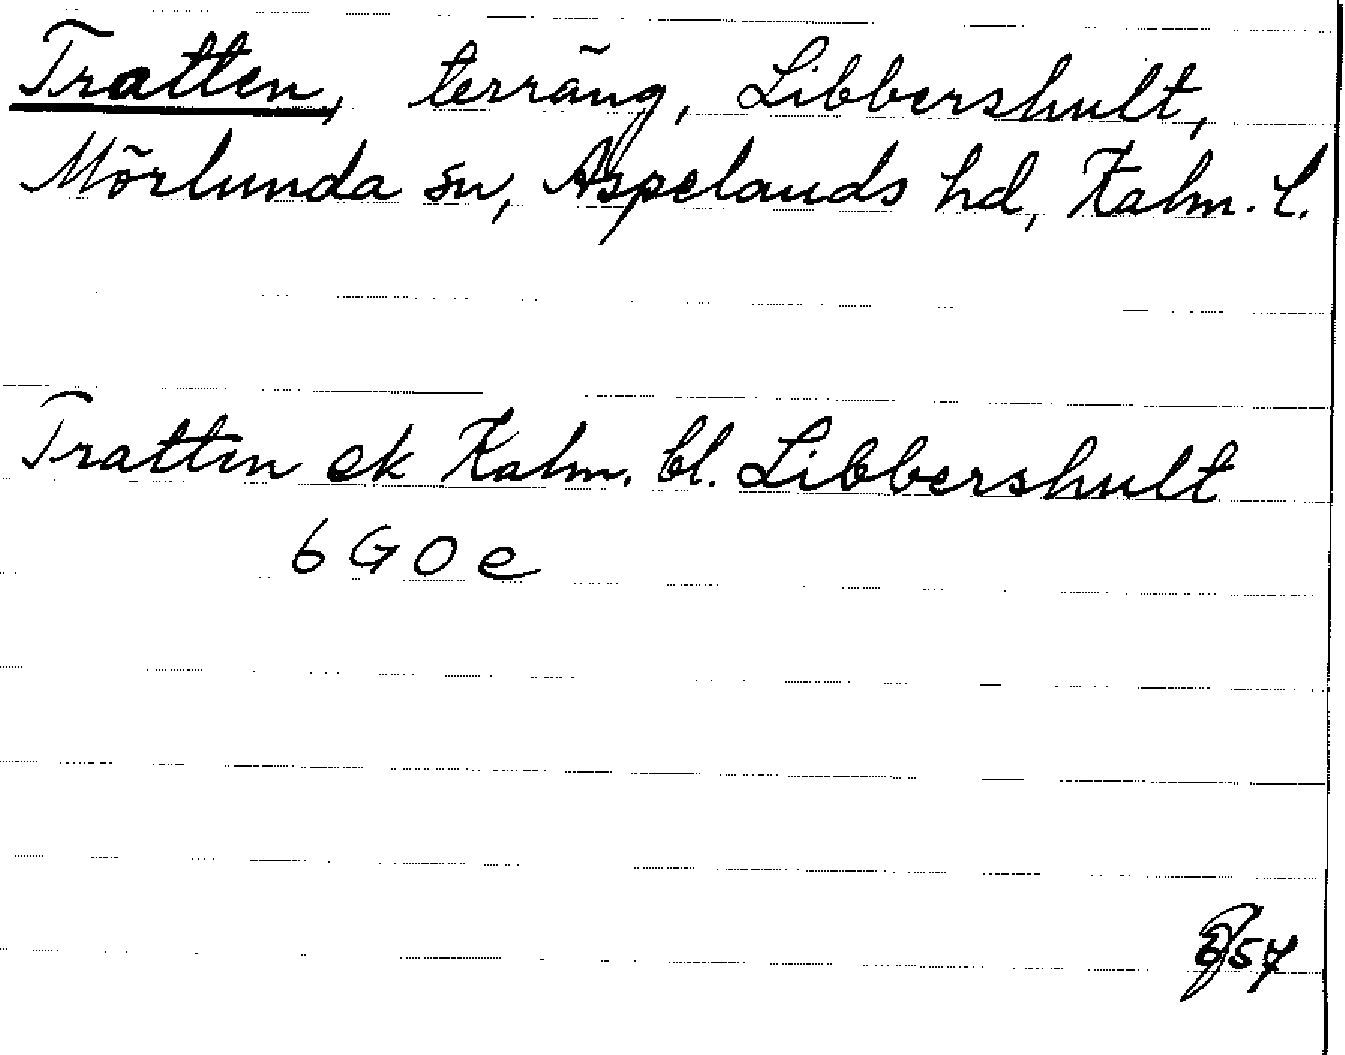 Tratten, terräng, Libbershult,
Mörlunda sn, Aspelands hd, Kalm. l.
Tratten ek Kalm. bl. Libbershult
6 G 0 e
57